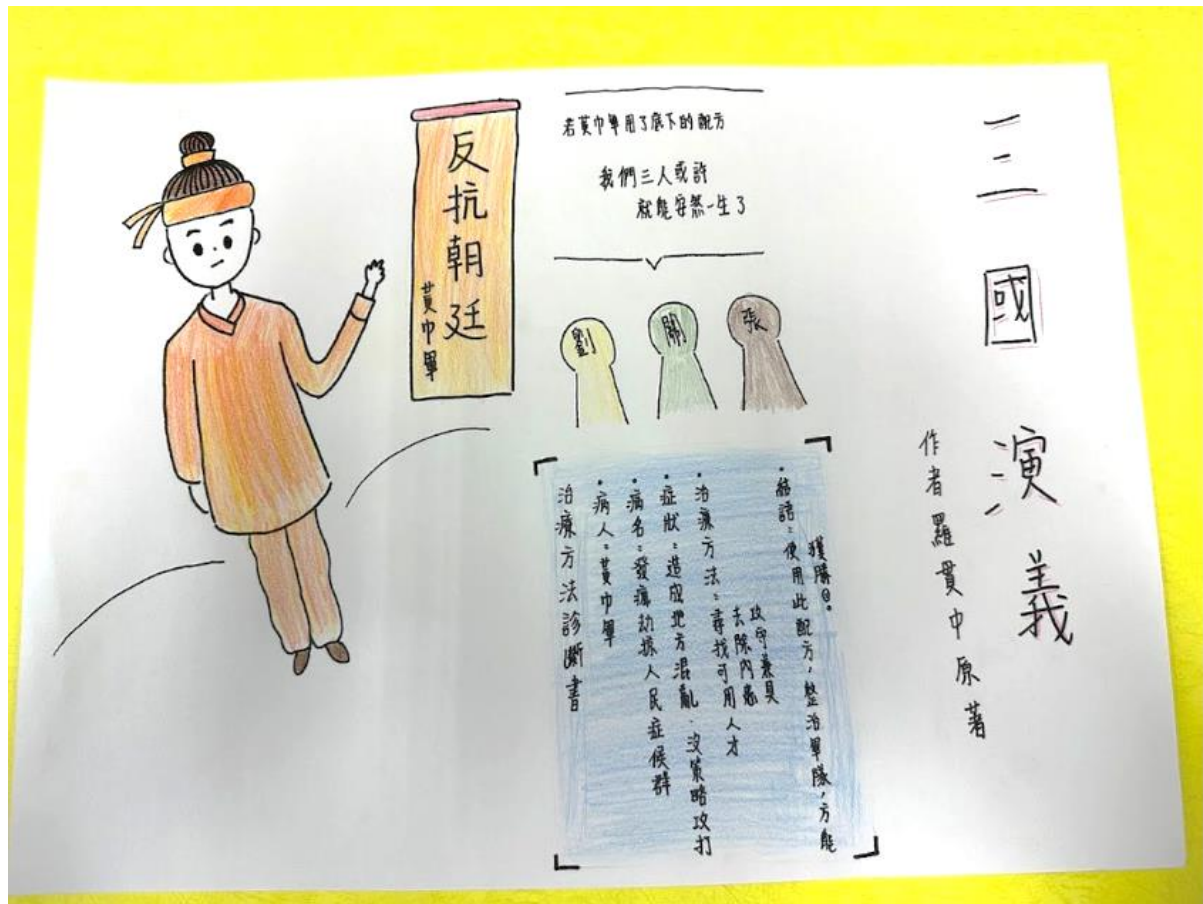 三國演義
作者羅貫中原著
若黃巾軍用了底下的配方
我們三人或許
就能安然一生了
劉
關
張
反抗朝廷
黃巾軍
治療方法診斷書
•病人:黃巾軍
•病名:發瘋劫掠人民症候群
•症狀:造成地方混亂、沒策略攻打
•治療方法:尋找可用人才
去除內患
攻守兼具
•結語:使用此配方,整治軍隊,方能
獲勝